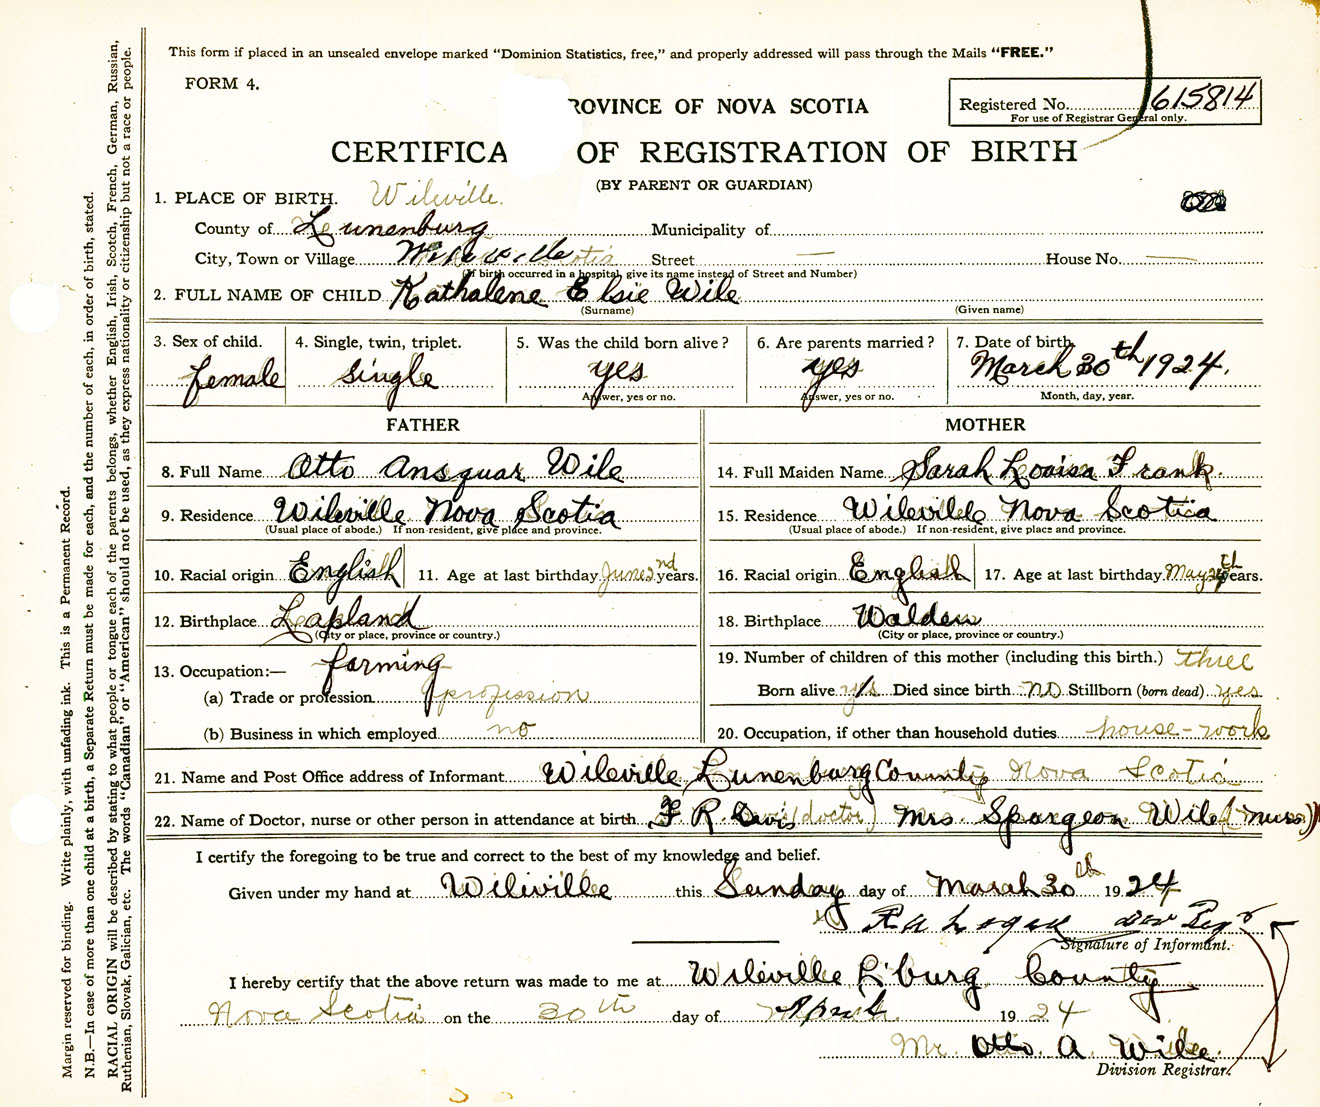 This form if placed in an unsealed envelope marked "Dominion Statistics, free," and properly addressed will pass through the Mails "FREE."
FORM 4.
ROVINCE OF NOVA SCOTIA
Registered No. 615814
For use of Registrar General only.
CERTIFICA OF REGISTRATION OF BIRTH
(BY PARENT OR GUARDIAN)
1. PLACE OF BIRTH. Wileville.
County of Lunenburg Municipality of
City, Town or Village Wileville Street — House No. —
(If birth occurred in a hospital, give its name instead of Street and Number)
2. FULL NAME OF CHILD Kathalene Elsie Wile
(Surname) (Given name)
3. Sex of child. 4. Single, twin, triplet. 5. Was the child born alive? 6. Are parents married? 7. Date of birth.
female single yes yes March 30th 1924.
Answer, yes or no. Answer, yes or no. Month, day, year.
FATHER MOTHER
8. Full Name Otto Ansguar Wile 14. Full Maiden Name Sarah Louisa Frank.
9. Residence Wileville Nova Scotia 15. Residence Wileville Nova Scotia
(Usual place of abode.) If non-resident, give place and province. (Usual place of abode.) If non-resident, give place and province.
10. Racial origin English 11. Age at last birthday June 2nd years. 16. Racial origin English 17. Age at last birthday May th years.
12. Birthplace Lapland 18. Birthplace Walden
(City or place, province or country.) (City or place, province or country.)
13. Occupation:— farming 19. Number of children of this mother (including this birth.) three
(a) Trade or profession profission Born alive yes Died since birth no Stillborn (born dead) yes
(b) Business in which employed no 20. Occupation, if other than household duties house-work
21. Name and Post Office address of Informant Wileville Lunenburg County Nova Scotia
22. Name of Doctor, nurse or other person in attendance at birth F R Davis (doctor) Mrs. Spurgeon Wile (nurse)
I certify the foregoing to be true and correct to the best of my knowledge and belief.
Given under my hand at Wileville this Sunday day of March 30th 1924
R A Logan Div Regr
Signature of Informant.
I hereby certify that the above return was made to me at Wileville L'burg County
Nova Scotia on the 30th day of April 1924
Mr. Otto. A. Wile.
Division Registrar.
Margin reserved for binding. Write plainly, with unfading ink. This is a Permanent Record.
N.B.—In case of more than one child at a birth, a Separate Return must be made for each, and the number of each, in order of birth, stated.
RACIAL ORIGIN will be described by stating to what people or tongue each of the parents belongs, whether English, Irish, Scotch, French, German, Russian,
Ruthenian, Slovak, Galician, etc. The words "Canadian" or "American" should not be used, as they express nationality or citizenship but not a race or people.